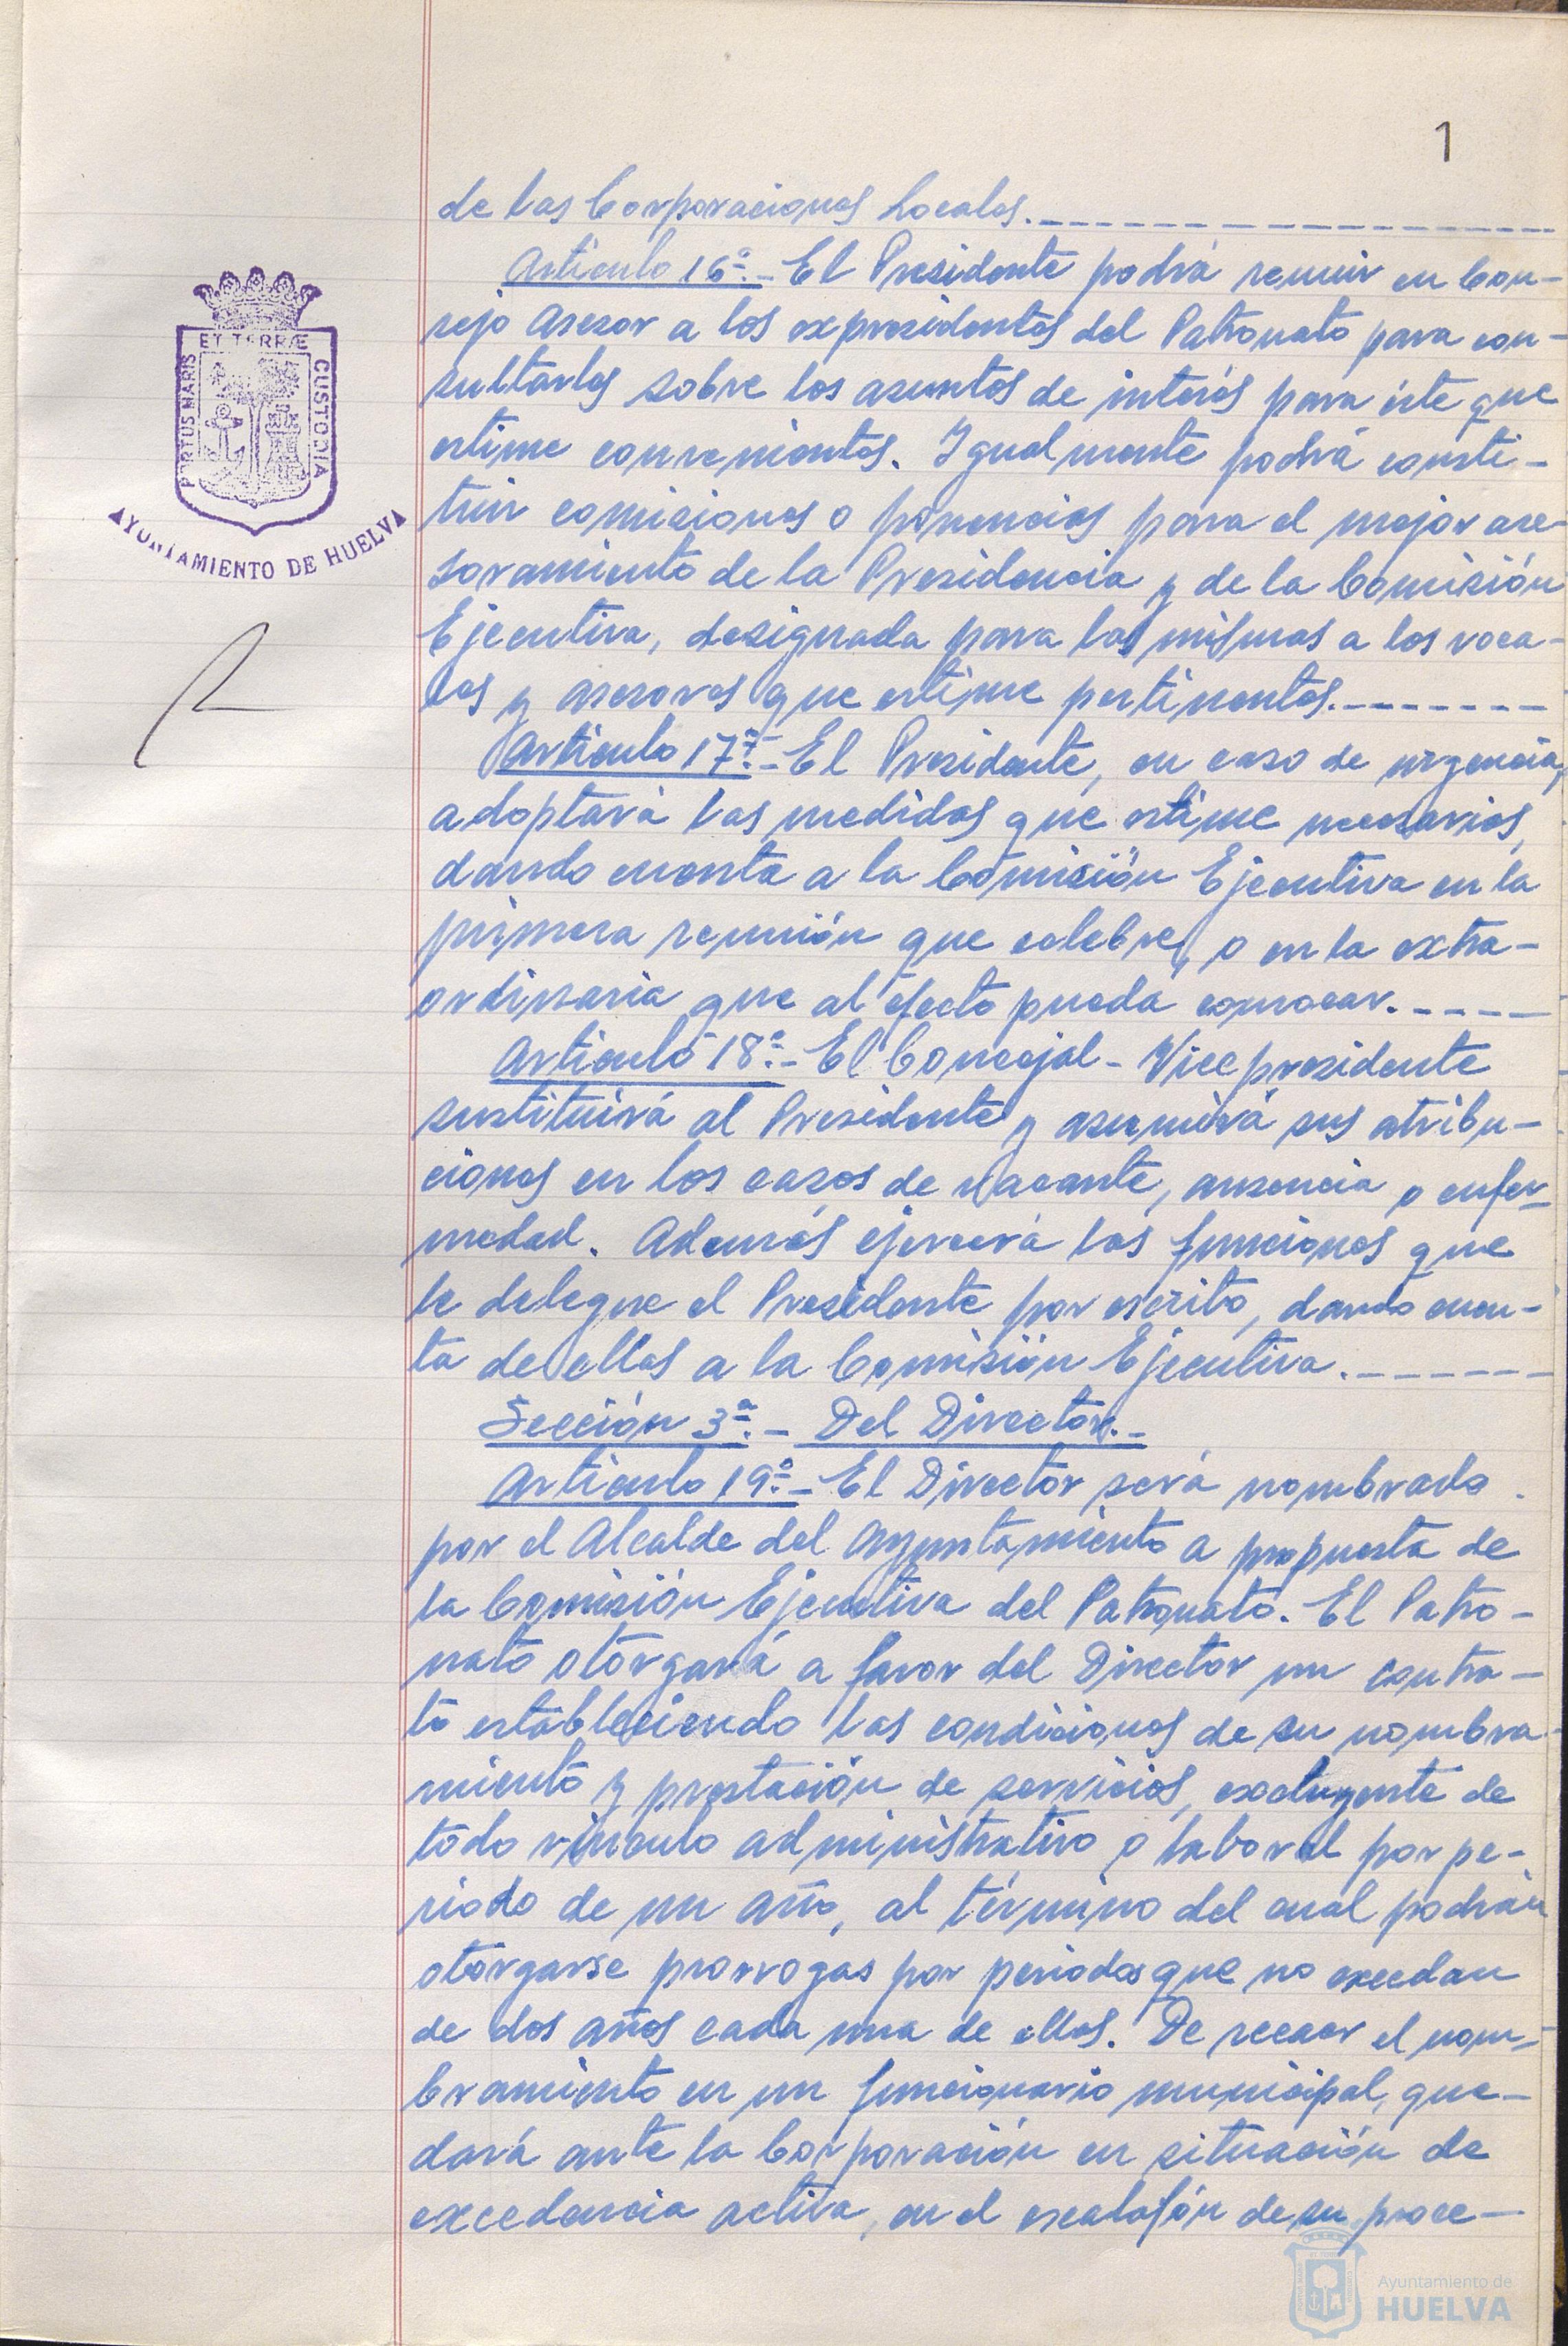 1
de las Corporaciones Locales.
Artículo 16º.- El Presidente podrá reunir en Con-
sejo Asesor a los expresidentes del Patronato para con-
sultarles sobre los asuntos de interés para éste que
estime convenientes. Igualmente podrá consti-
tuir comisiones o ponencias para el mejor ase-
soramiento de la Presidencia y de la Comisión
Ejecutiva, designada para las mismas a los voca-
les y asesores que estime pertinentes.
Artículo 17º.- El Presidente, en caso de urgencia,
adoptará las medidas que estime necesarias,
dando cuenta a la Comisión Ejecutiva en la
primera reunión que celebre, o en la extra-
ordinaria que al efecto pueda convocar.
Artículo 18º.- El Concejal-Vicepresidente
sustituirá al Presidente y asumirá sus atribu-
ciones en los casos de vacante, ausencia o enfer-
medad. Además ejercerá las funciones que
le delegue el Presidente por escrito, dando cuen-
ta de ellas a la Comisión Ejecutiva.
Sección 3ª.- Del Director.-
Artículo 19º.- El Director será nombrado
por el Alcalde del Ayuntamiento a propuesta de
la Comisión Ejecutiva del Patronato. El Patro-
nato otorgará a favor del Director un contra-
to estableciendo las condiciones de su nombra-
miento y prestación de servicios, excluyente de
todo vínculo administrativo o laboral por pe-
riodo de un año, al término del cual podrán
otorgarse prorrogas por periodos que no excedan
de dos años cada una de ellas. De recaer el nom-
bramiento en un funcionario municipal, que-
dará ante la Corporación en situación de
excedencia activa, en el escalafón de su proce-
PORTUS MARIS
ET TERRÆ
CUSTODIA
AYUNTAMIENTO DE HUELVA
Ayuntamiento de
HUELVA